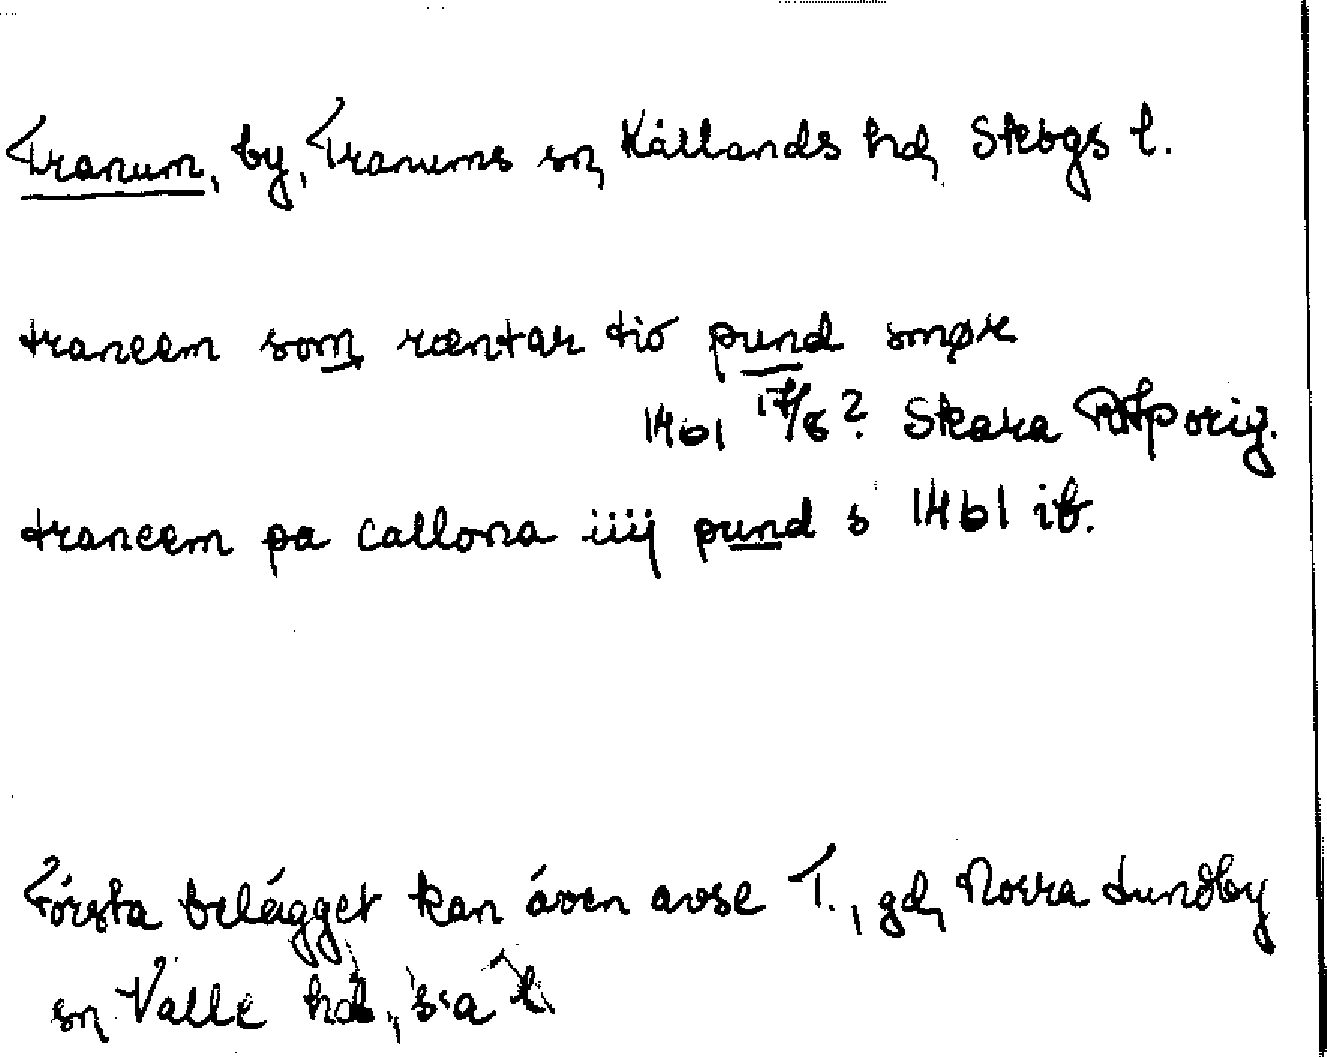 Tranum, by, Tranums sn, Kållands hd, Skbgs l.
traneem som ræntar tiö pund smør
1461 17/8? Skara RAp orig.
traneem pa callona iiij pund s 1461 ib.
Första belägget kan även avse T., gd, Norra Lundby
sn, Valle hd, s a l